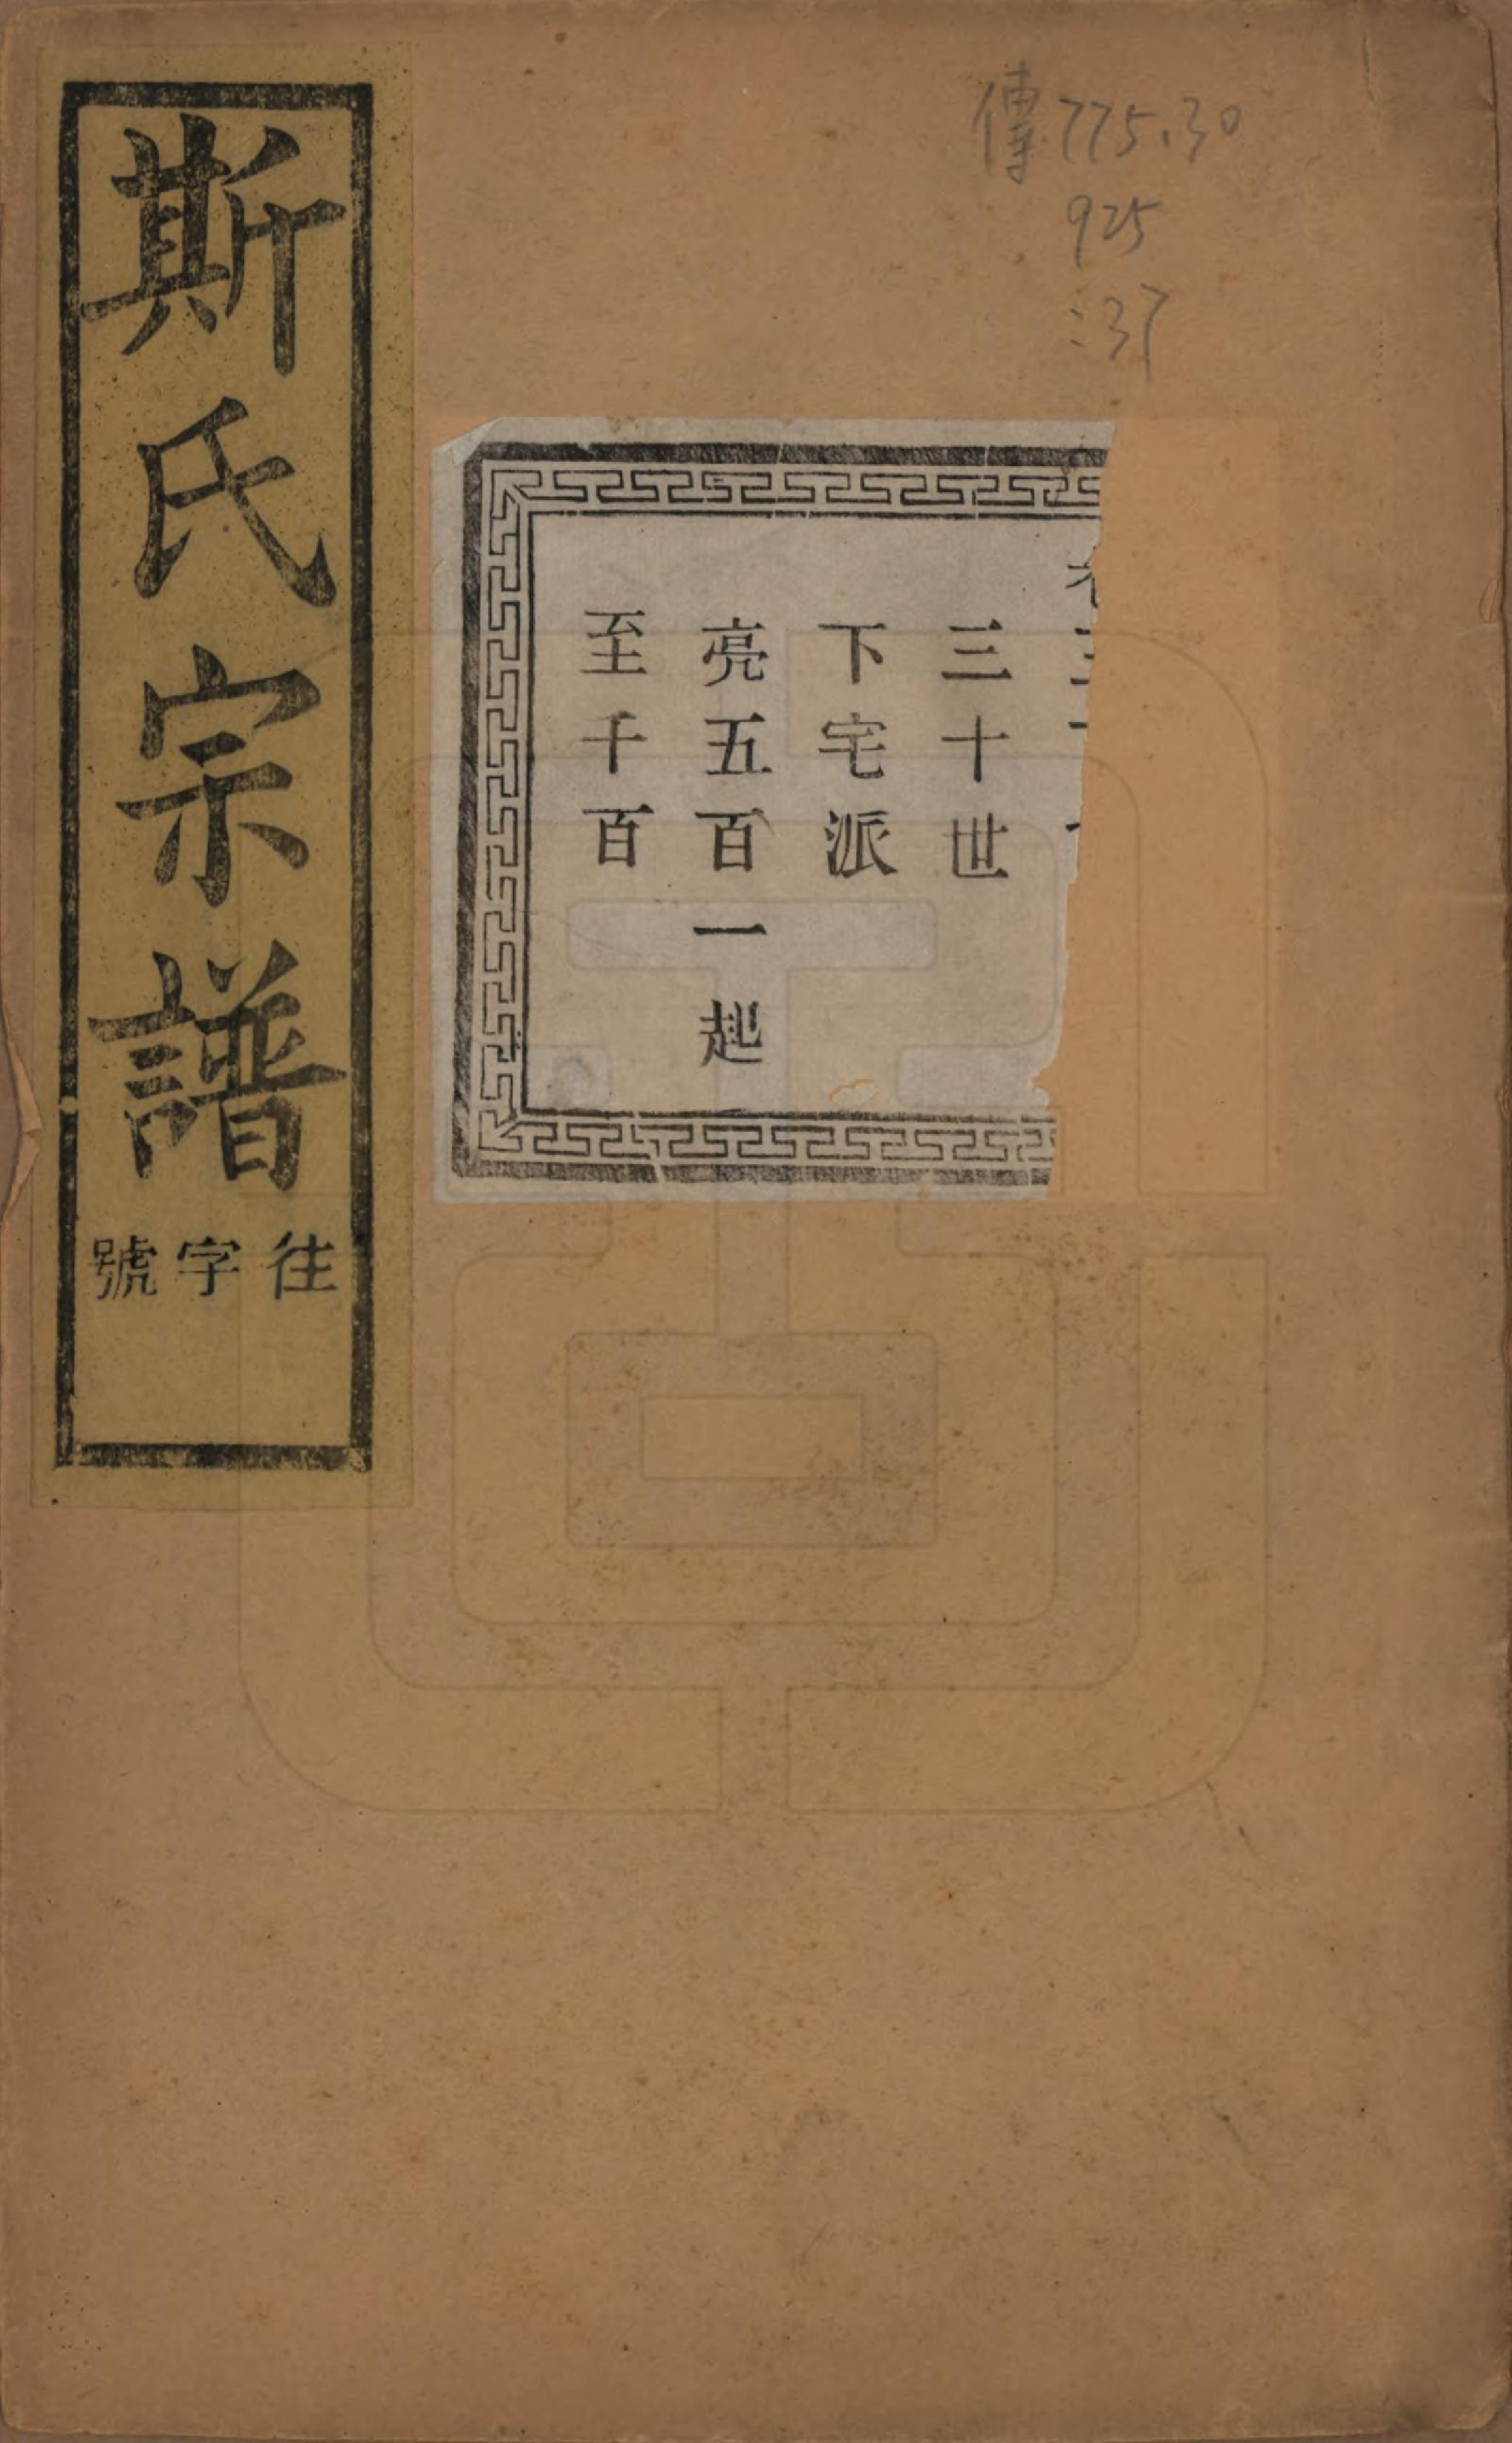 傳775.30
925
:37
三十世
下宅派
亮五百一起
至千百
斯氏宗譜
往字號